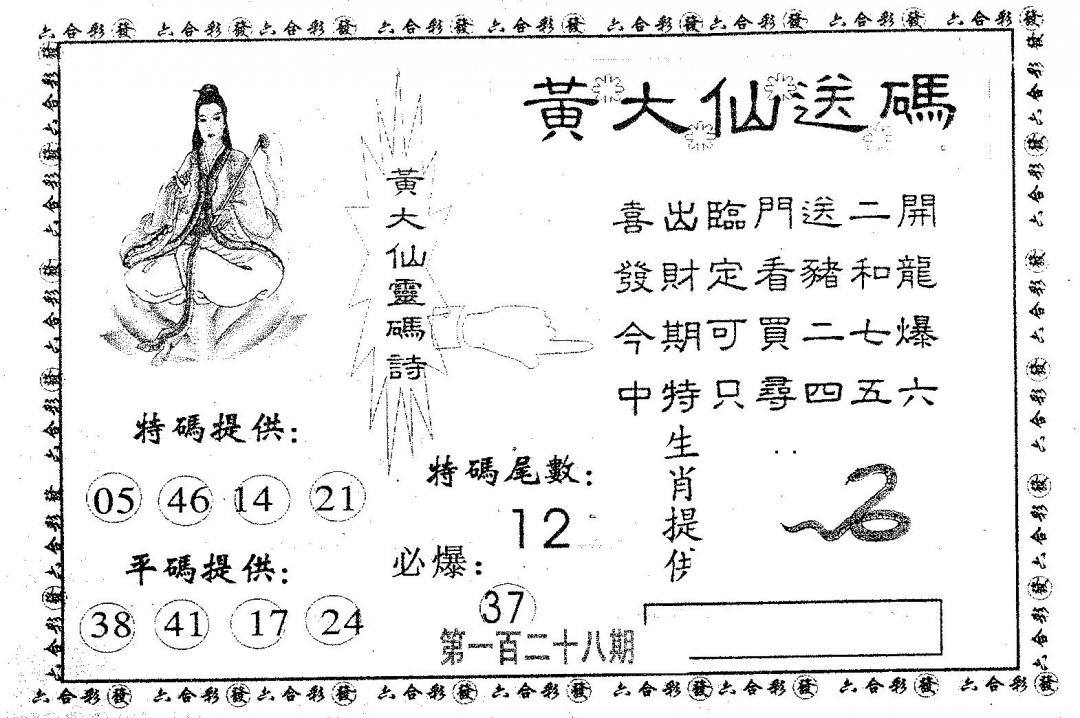 六合彩發 六合彩發六合彩發 六合彩發 六合彩發 六合彩發六合彩發 六合彩發 六合彩發
黃大仙送碼
黃大仙靈碼詩
喜出臨門送二開
發財定看豬和龍
今期可買二七爆
中特只尋四五六
特碼提供:
05 46 14 21
平碼提供:
38 41 17 24
特碼尾數:
12
必爆:
37
第一百二十八期
生肖提供
六合彩發 六合彩發六合彩發 六合彩發 六合彩發 六合彩發六合彩發 六合彩發 六合彩發